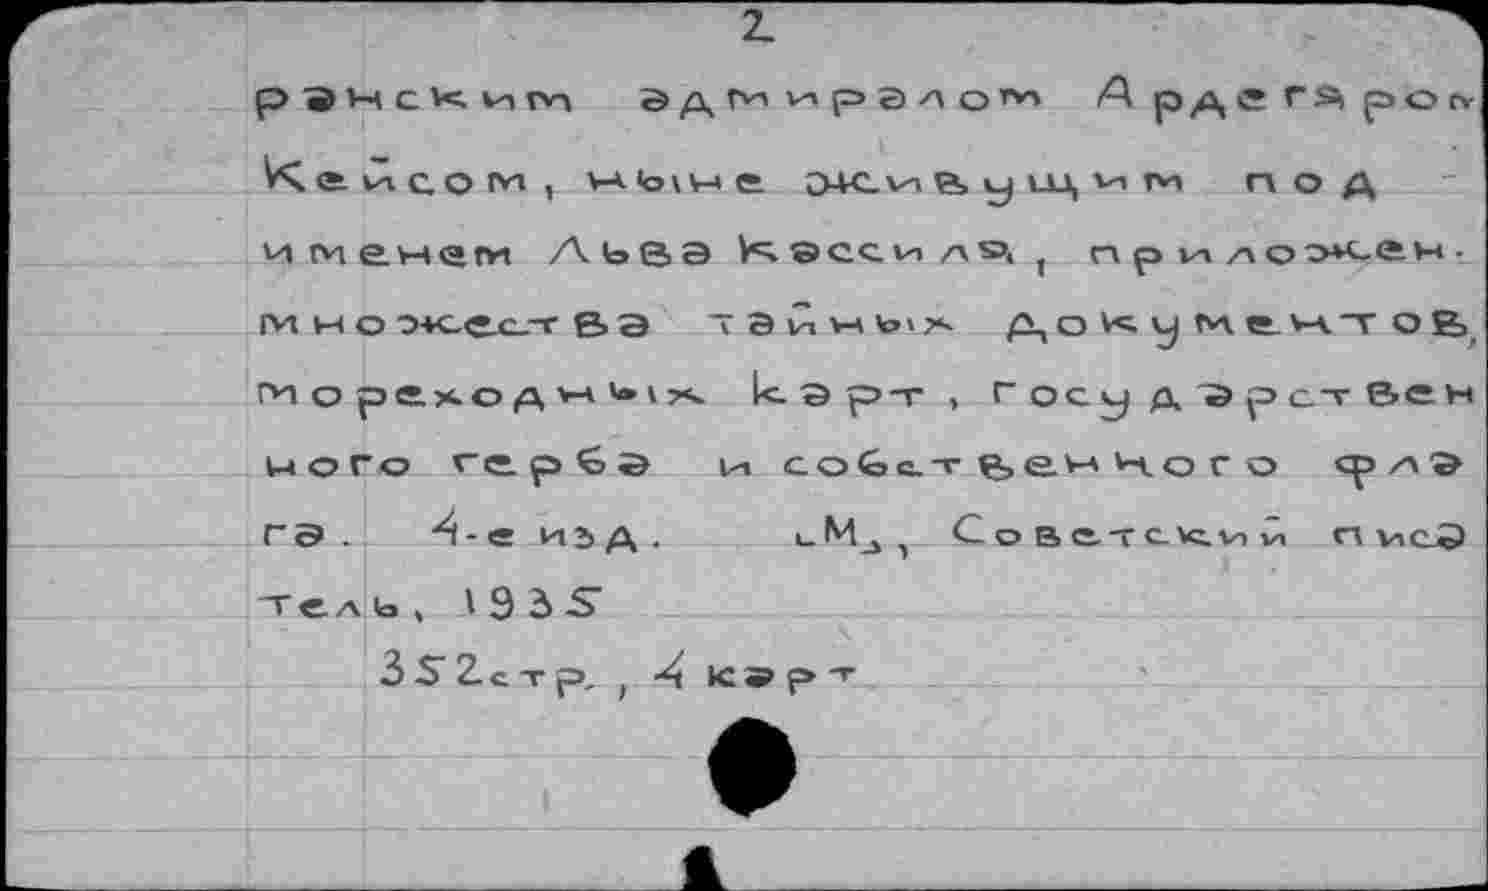 2
ранским адмиралом Ардегаром
Кейсом, ныне живущим под
именем Льва Кассиля, приложен.
множества тайных документов,
мореходных карт, государствен
ного герба и собственного фла
га. 4-е изд. [М.], Советский писа
тель, 1935
352стр., 4 карт